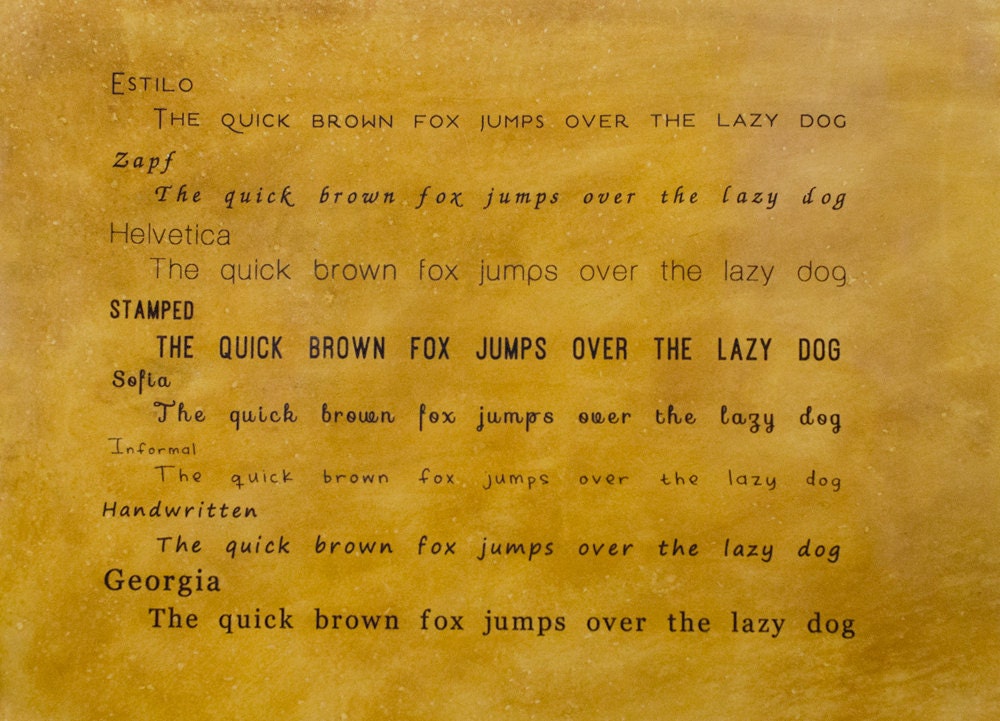 ESTILO
THE QUICK BROWN FOX JUMPS OVER THE LAZY DOG
Zapf
The quick brown fox jumps over the lazy dog
Helvetica
The quick brown fox jumps over the lazy dog
STAMPED
THE QUICK BROWN FOX JUMPS OVER THE LAZY DOG
Sofia
The quick brown fox jumps over the lazy dog
Informal
The quick brown fox jumps over the lazy dog
Handwritten
The quick brown fox jumps over the lazy dog
Georgia
The quick brown fox jumps over the lazy dog